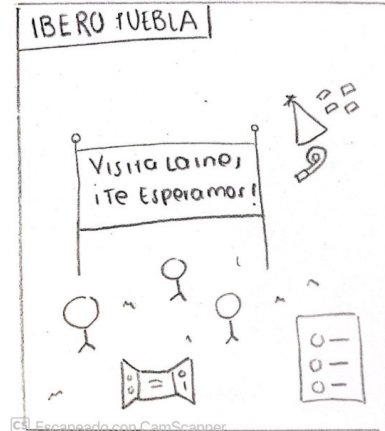 IBERO PUEBLA
Visita Laines,
¡Te Esperamos!
CS Escaneado con CamScanner